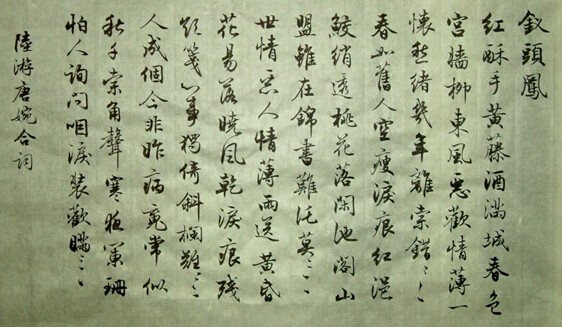 釵頭鳳
紅酥手黃藤酒滿城春色
宮牆柳東風惡歡情薄一
懷愁緒幾年離索錯〻〻
春如舊人空瘦淚痕紅浥
鮫綃透桃花落閑池閣山
盟雖在錦書難託莫〻〻
世情惡人情薄雨送黃昏
花易落曉風乾淚痕殘
欲箋心事獨倚斜欄難〻〻
人成個今非昨病魂常似
秋千索角聲寒夜闌珊
怕人詢問咽淚裝歡瞞〻〻
陸游唐婉合詞